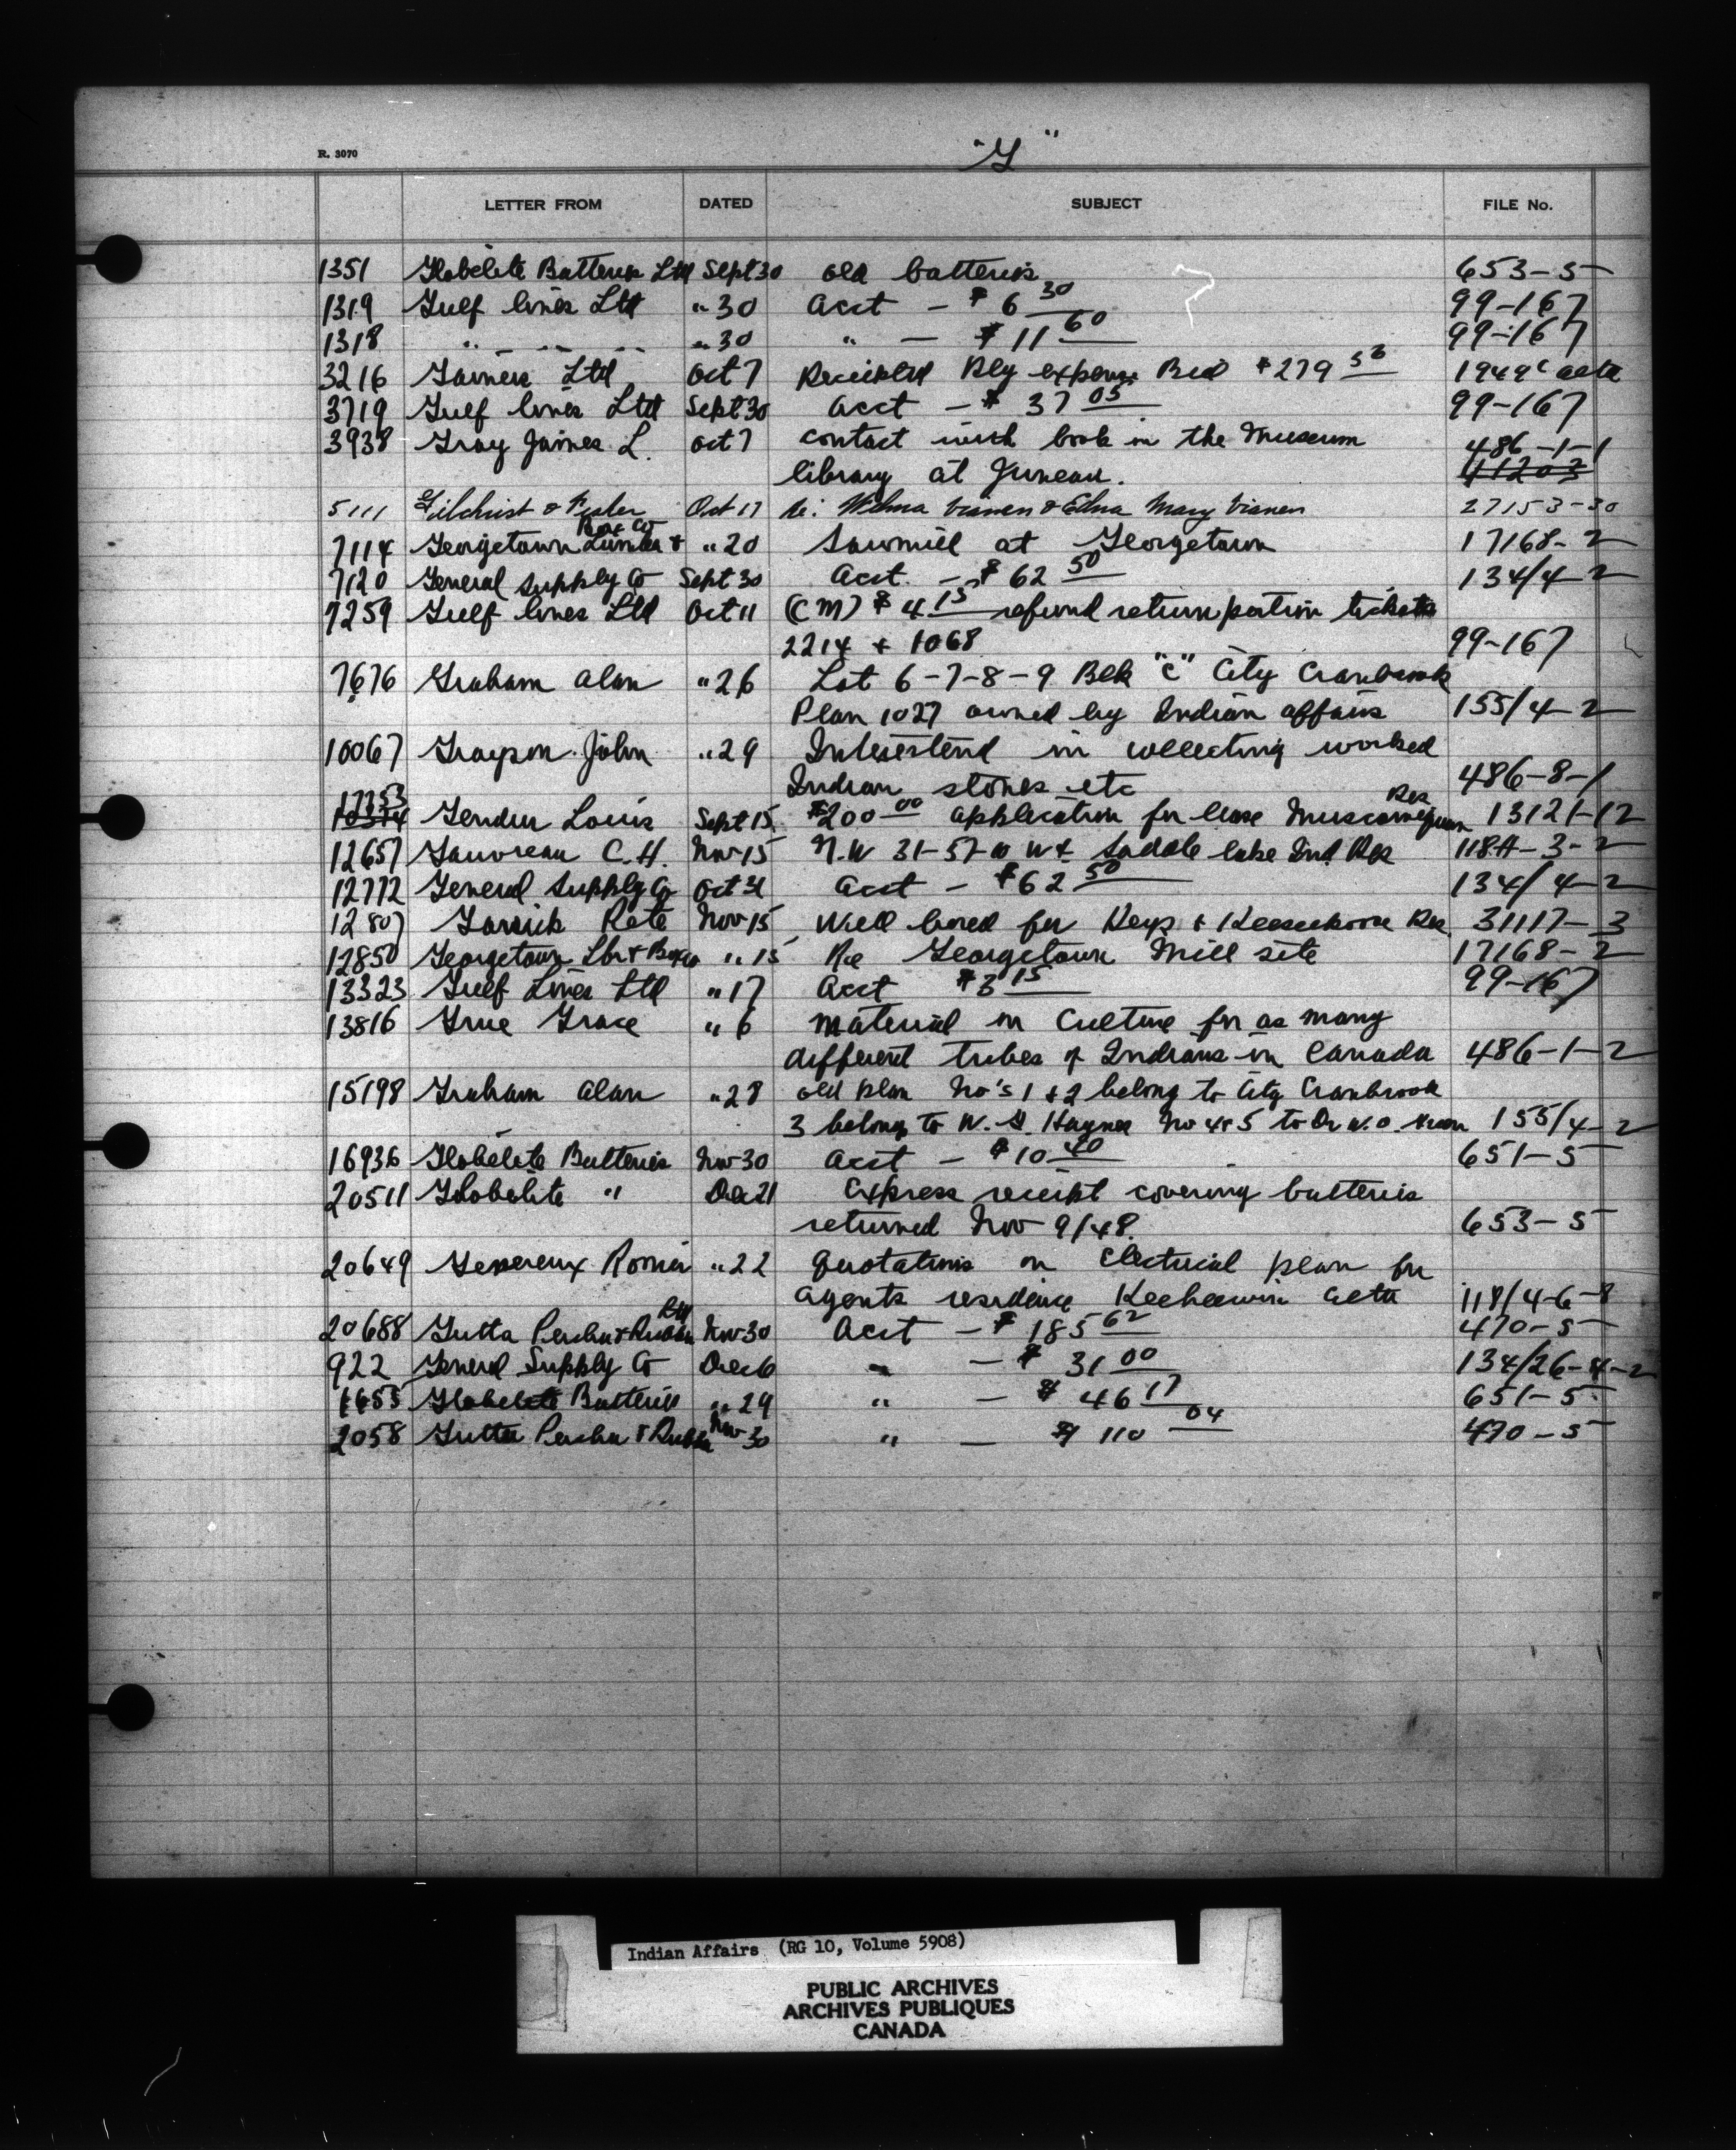 R. 3070
"G"
LETTER FROM DATED SUBJECT FILE No.
1351 Globelite Batteries Ltd Sept 30 old batteries 653-5
1319 Gulf lines Ltd " 30 Acct - $ 6 30 99-167
1318 " " " " 30 " - $ 11 60 99-167
3216 Gainers Ltd Oct 7 Receipted Rly expense Bill $ 279 56
3719 Gulf lines Ltd Sept 30 Acct - $ 37 05 99-167
3938 Gray James L. Oct 7 contact with book in the Museum 486-1-1
library at Juneau. 11203
5111 Gilchrist & Oct 17 re: Wilma Vianen & Edna Mary Vianen 27153-30
Box Co
7114 Georgetown Lumber & " 20 Sawmill at Georgetown 17168-2
7120 General Supply Co Sept 30 Acct. - $ 62 50 134/4-2
7259 Gulf lines Ltd Oct 11 (CM) $ 4 15 refund return portion tickets
2214 + 1068 99-167
7676 Graham Alan " 26 Lot 6-7-8-9 Blk "C" City Cranbrook
Plan 1027 owned by Indian affairs 155/4-2
10067 Grayson John " 29 Interested in collecting worked
Indian stones etc 486-8-1
17353 Res
Gendur Louis Sept 15 $200 00 application for lease Muscowequan 13121-12
12657 Gauvreau C.H. Nov 15 N.W 31-57-10 W4 Saddle lake Ind Res 118A-3-2
12772 General Supply Co Oct 31 Acct - $62 50 134/4-2
12807 Garrick Nov 15 Well bored for Keys & Keeseekoose Res. 31117-3
12850 Georgetown Lbr & Box Co " 15 Re Georgetown Mill site 17168-2
13323 Gulf Lines Ltd " 17 Acct $3 15 99-167
13816 Grue Grace " 6 Material on Culture for as many
different tribes of Indians in Canada 486-1-2
15198 Graham Alan " 28 old plan No's 1 & 2 belong to City Cranbrook
3 belongs to W. G. Haynes No 4 & 5 to Dr W.O. 155/4-2
16936 Globelite Batteries Nov 30 Acct - $10 40 651-5
20511 Globelite " Dec 21 Express receipt covering batteries
returned Nov 9/48. 653-5
20649 Genereux Romeo " 22 Quotations on Electrical plan for
Agents residence Keeheewin 118/4-6-8
20688 Gutta Percha & Rubber Nov 30 Acct - $ 185 62 470-5
922 General Supply Co Dec 6 " - $ 31 00 134/26-4-2
1655 Globelite Batteries " 29 " - $ 46 17 651-5
2058 Gutta Percha & Rubber Nov 30 " - $ 110 04 470-5
Indian Affairs (RG 10, Volume 5908)
PUBLIC ARCHIVES
ARCHIVES PUBLIQUES
CANADA